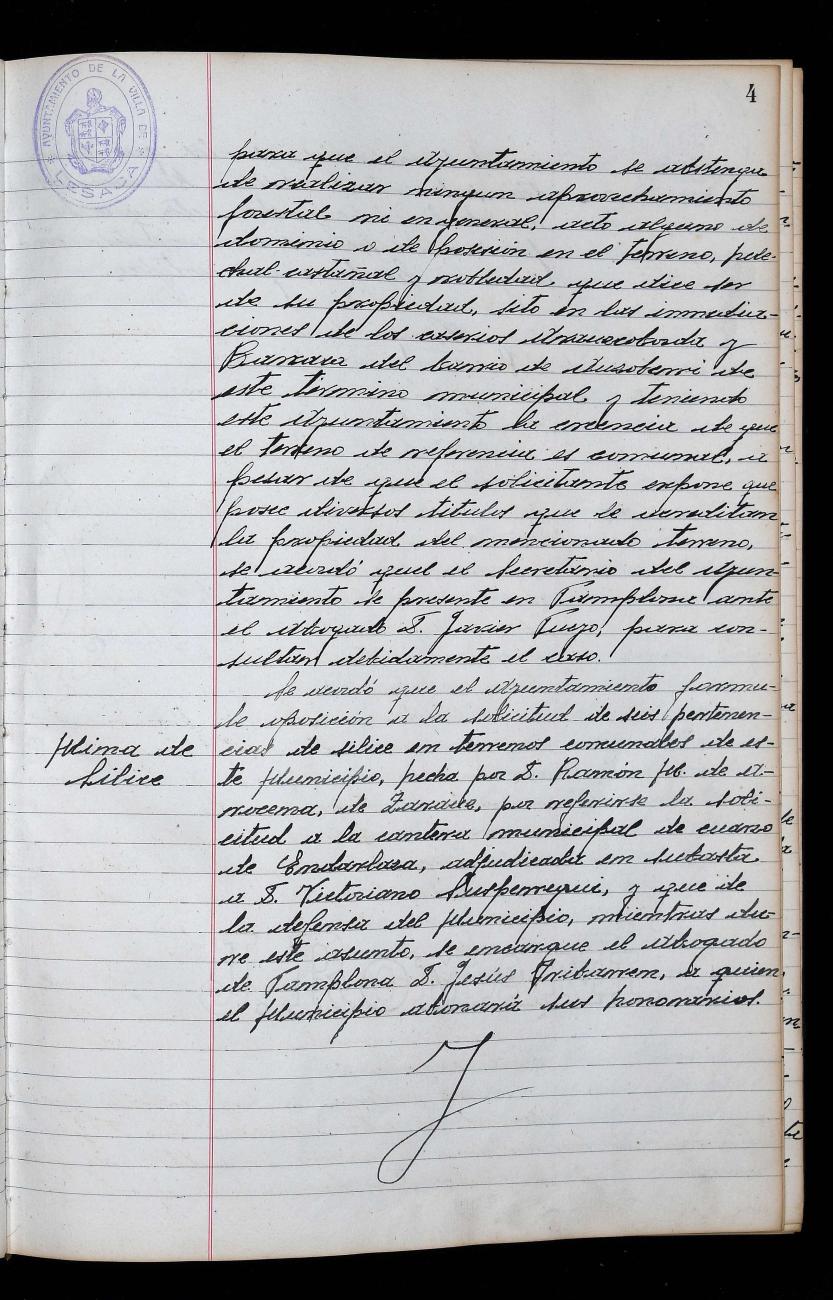 4
AYUNTAMIENTO DE LA VILLA DE
LESACA
para que el Ayuntamiento se abstenga
de realizar ningun aprovechamiento
forestal ni en general, acto alguno de
dominio o de posesion en el terreno, hele-
chal castañal y robledad, que dice ser
de su propiedad, sito en las inmedia-
ciones de los caserios y
del barrio de de
este termino municipal y teniendo
este Ayuntamiento la creencia de que
el terreno de referencia es comunal, a
pesar de que el solicitante expone que
posee diversos titulos que le acreditan
la propiedad del mencionado terreno,
se acordó quel el Secretario del Ayun-
tamiento se presente en Pamplona ante
el abogado D. Javier para con-
sultar debidamente el caso.
Se acordó que el Ayuntamiento formu-
le oposición a la solicitud de seis pertenen-
Mina de
Silice
cias de silice en terrenos comunales de es-
te Municipio, hecha por D. Ramón M. de A-
rocena, de Zarauz, por referirse la soli-
citud a la cantera municipal de cuarzo
de Endarlaza, adjudicada en subasta
a D. Victoriano Susperregui, y que de
la defensa del Municipio, mientras du-
re este asunto, se encargue el abogado
de Pamplona D. Jesús Iribarren, a quien
el Municipio abonará sus honorarios.